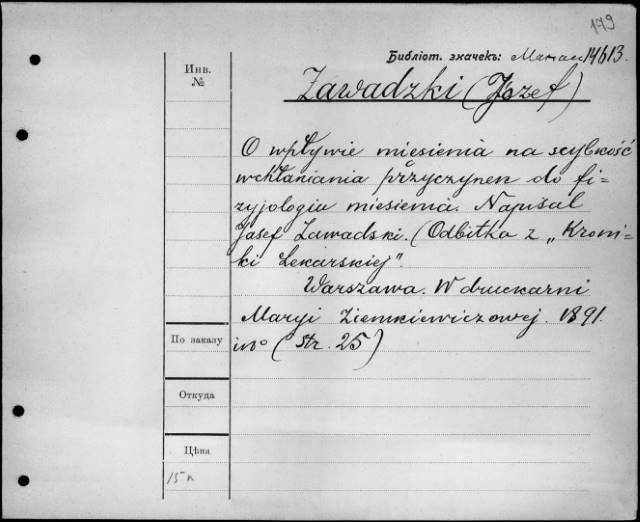 179
Библiот. значекъ: 14613.
Инв.
№
Zawadzki (Józef)
O wpływie miesienia na szybkość
wchłaniania przyczynek do fi-
zyjologii miesienia. Napisał
Josef Zawadzki. (Odbitka z „Kroni-
ki Lekarskiej".
Warszawa. W drukarni
Maryi Ziemkiewiczowej. 1891.
По заказу
in 8° (str. 25)
Откуда
Цѣна
15 к